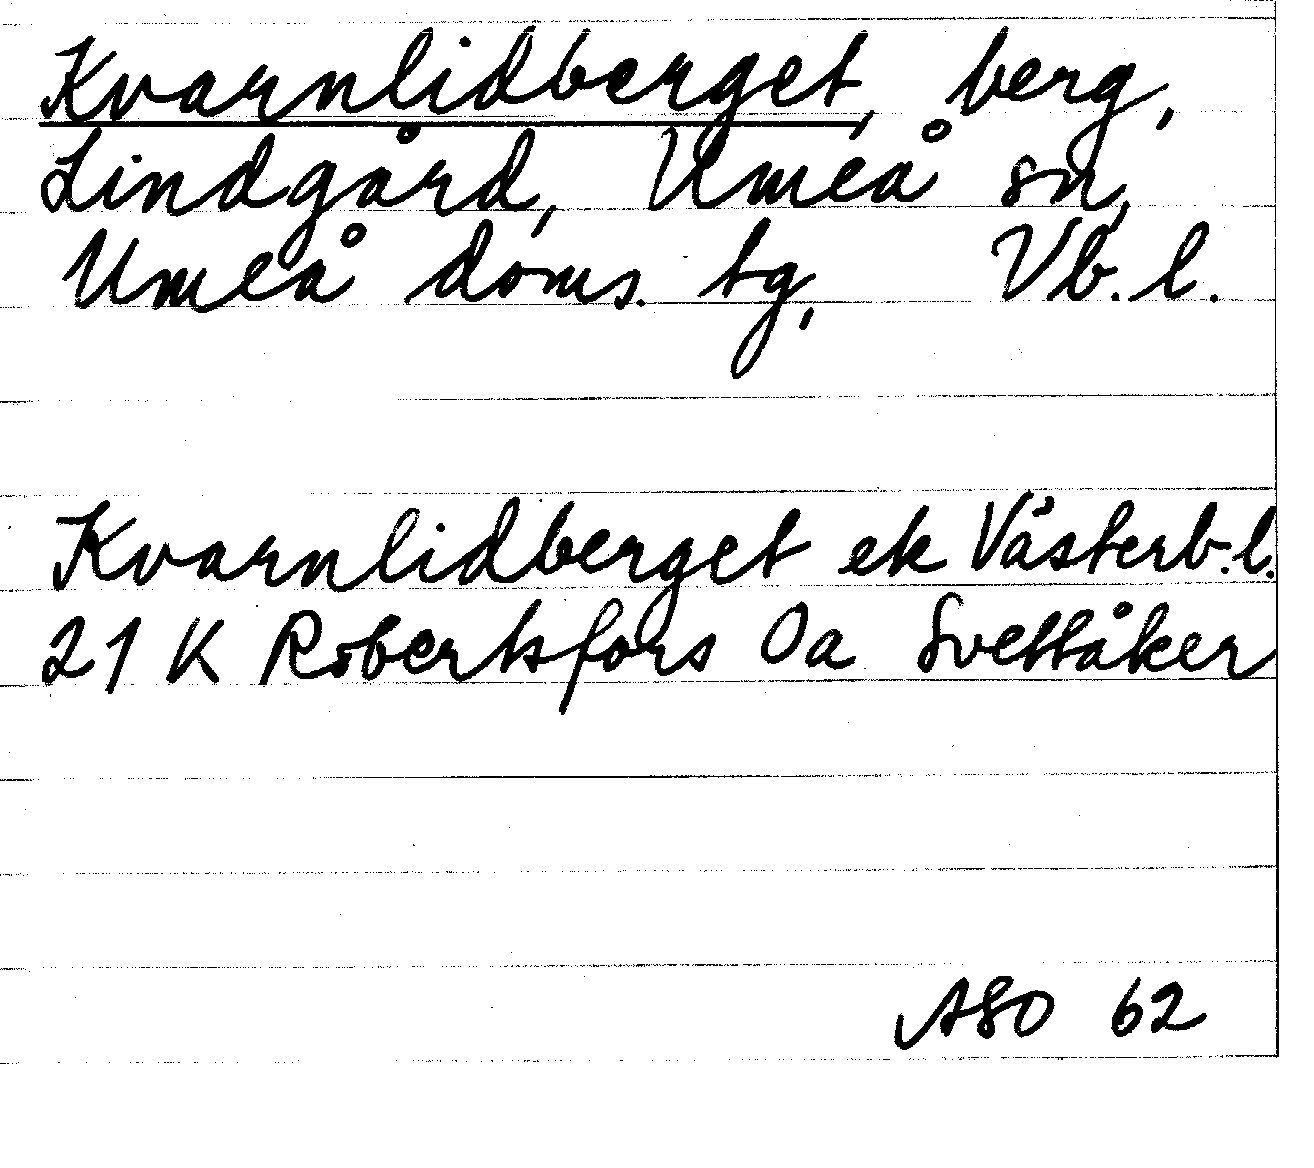 Kvarnlidberget, berg,
Lindgård, Umeå sn,
Umeå doms. tg, Vb. l.
Kvarnlidberget ek Västerb. l.
21 K Robertsfors Oa Svettåker
ASO 62